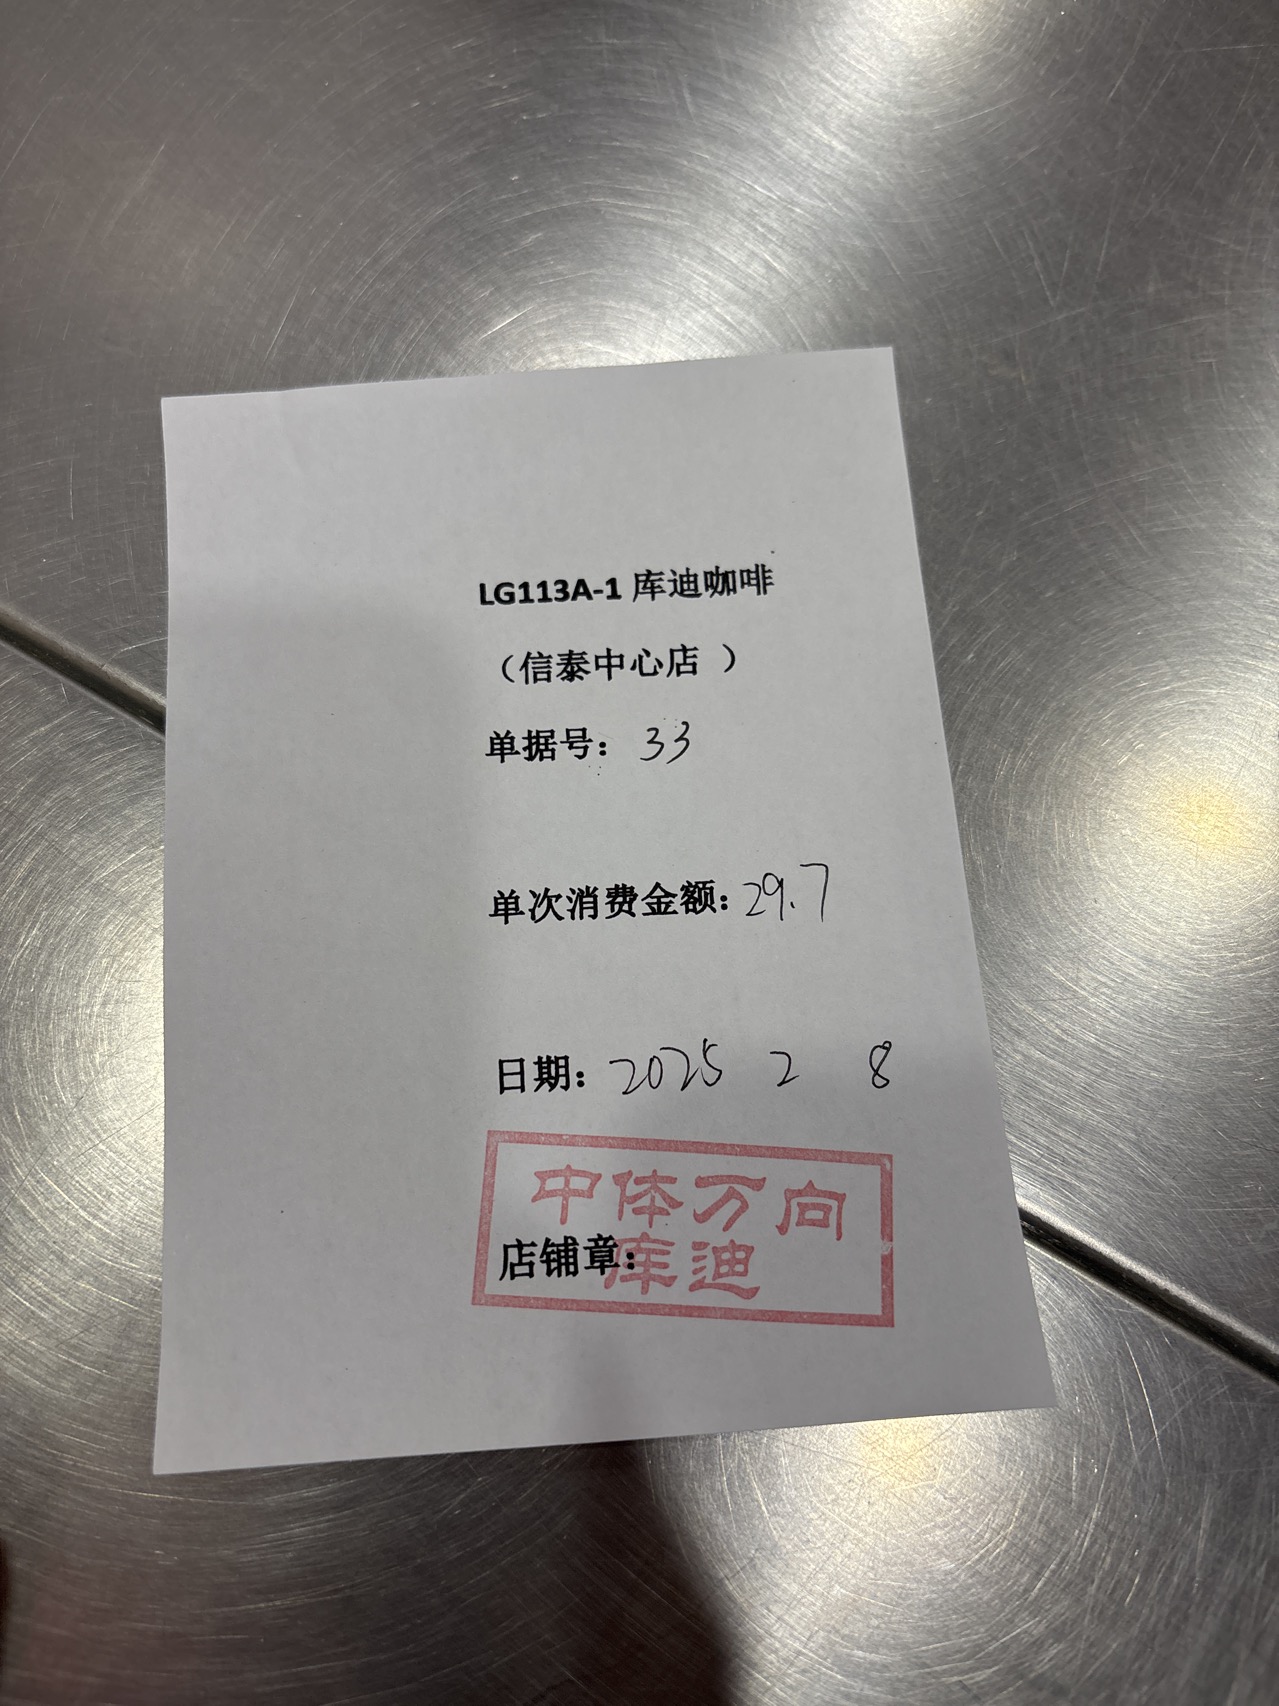 LG113A-1 库迪咖啡
（信泰中心店 ）
单据号：33
单次消费金额：29.7
日期：2025 2 8
中体万向
库迪
店铺章：